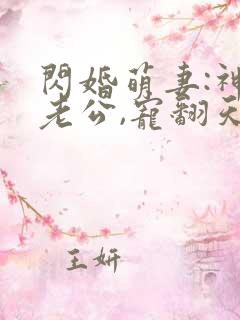 閃婚萌妻:神
老公,寵翻天
王妍